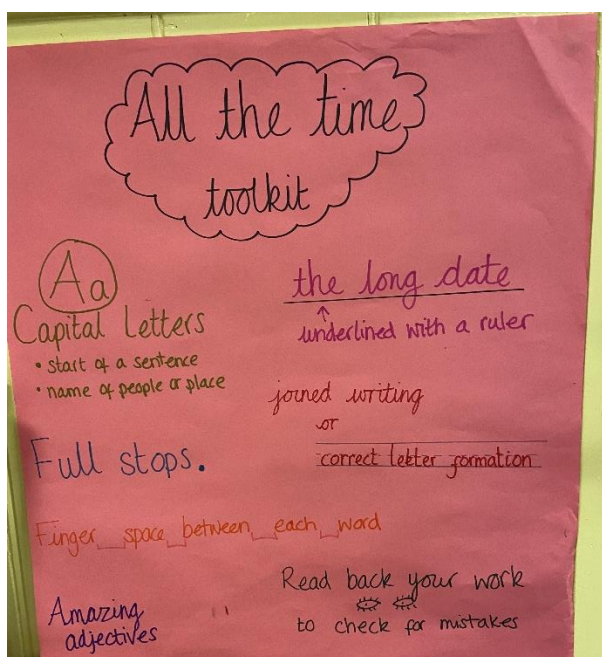 All the time
toolkit
Aa
Capital Letters
• start of a sentence
• name of people or place
the long date
underlined with a ruler
joined writing
or
correct letter formation
Full stops.
Finger space between each word
Amazing
adjectives
Read back your work
to check for mistakes